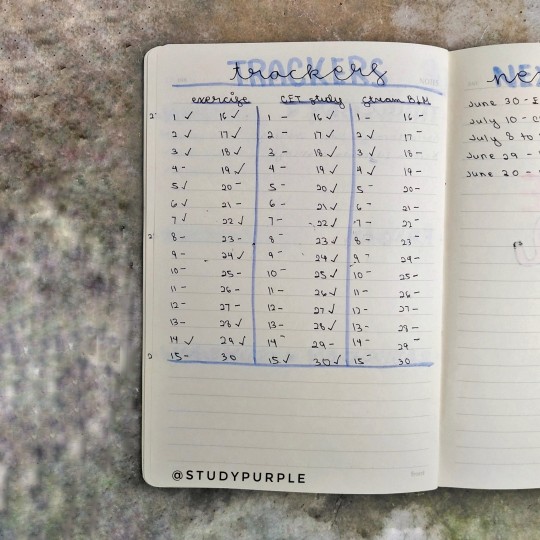 TRACKERS
trackers
exercise CET study stream BLM
1 ✓ 16 ✓ 1 - 16 ✓ 1 - 16 -
2 ✓ 17 ✓ 2 - 17 ✓ 2 ✓ 17 -
3 ✓ 18 ✓ 3 - 18 ✓ 3 ✓ 18 -
4 - 19 ✓ 4 - 19 ✓ 4 ✓ 19 -
5 ✓ 20 - 5 - 20 ✓ 5 - 20 -
6 ✓ 21 - 6 - 21 ✓ 6 - 21 -
7 ✓ 22 ✓ 7 - 22 ✓ 7 - 22 -
8 - 23 - 8 - 23 ✓ 8 - 23 -
9 - 24 ✓ 9 - 24 ✓ 9 - 24 -
10 - 25 - 10 - 25 ✓ 10 - 25 -
11 - 26 - 11 - 26 ✓ 11 - 26 -
12 - 27 - 12 - 27 ✓ 12 - 27 -
13 - 28 ✓ 13 - 28 ✓ 13 - 28 -
14 ✓ 29 ✓ 14 - 29 - 14 - 29 -
15 - 30 15 ✓ 30 ✓ 15 - 30
@STUDYPURPLE
June 30 -
July 10 -
July 8 to
June 29 -
June 20 -